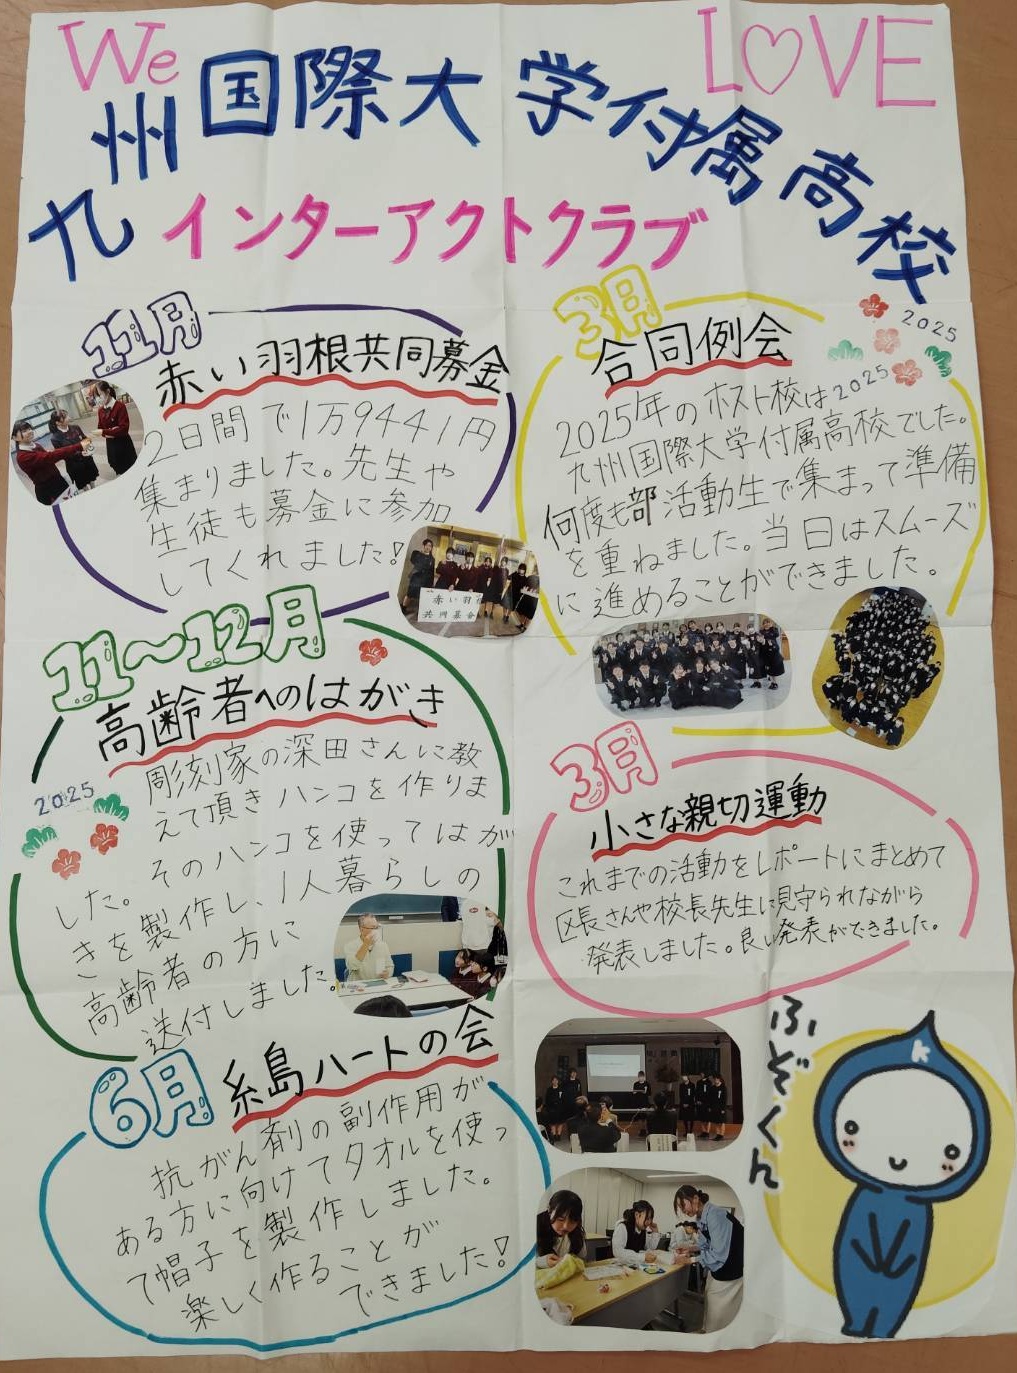 We LOVE
九州国際大学付属高校
インターアクトクラブ
11月
赤い羽根共同募金
2日間で1万9441円
集まりました。先生や
生徒も募金に参加
してくれました!
赤い羽根
共同募金
11〜12月
高齢者へのはがき
2025
彫刻家の深田さんに教
えて頂きハンコを作りま
した。そのハンコを使ってはが
きを製作し、1人暮らしの
高齢者の方に
送付しました。
6月
糸島ハートの会
抗がん剤の副作用が
ある方に向けてタオルを使っ
て帽子を製作しました。
楽しく作ることが
できました!
3月
合同例会
2025
2025
2025年のホスト校は
九州国際大学付属高校でした。
何度も部活動生で集まって準備
を重ねました。当日はスムーズ
に進めることができました。
3月
小さな親切運動
これまでの活動をレポートにまとめて
区長さんや校長先生に見守られながら
発表しました。良い発表ができました。
ふぞくん
K